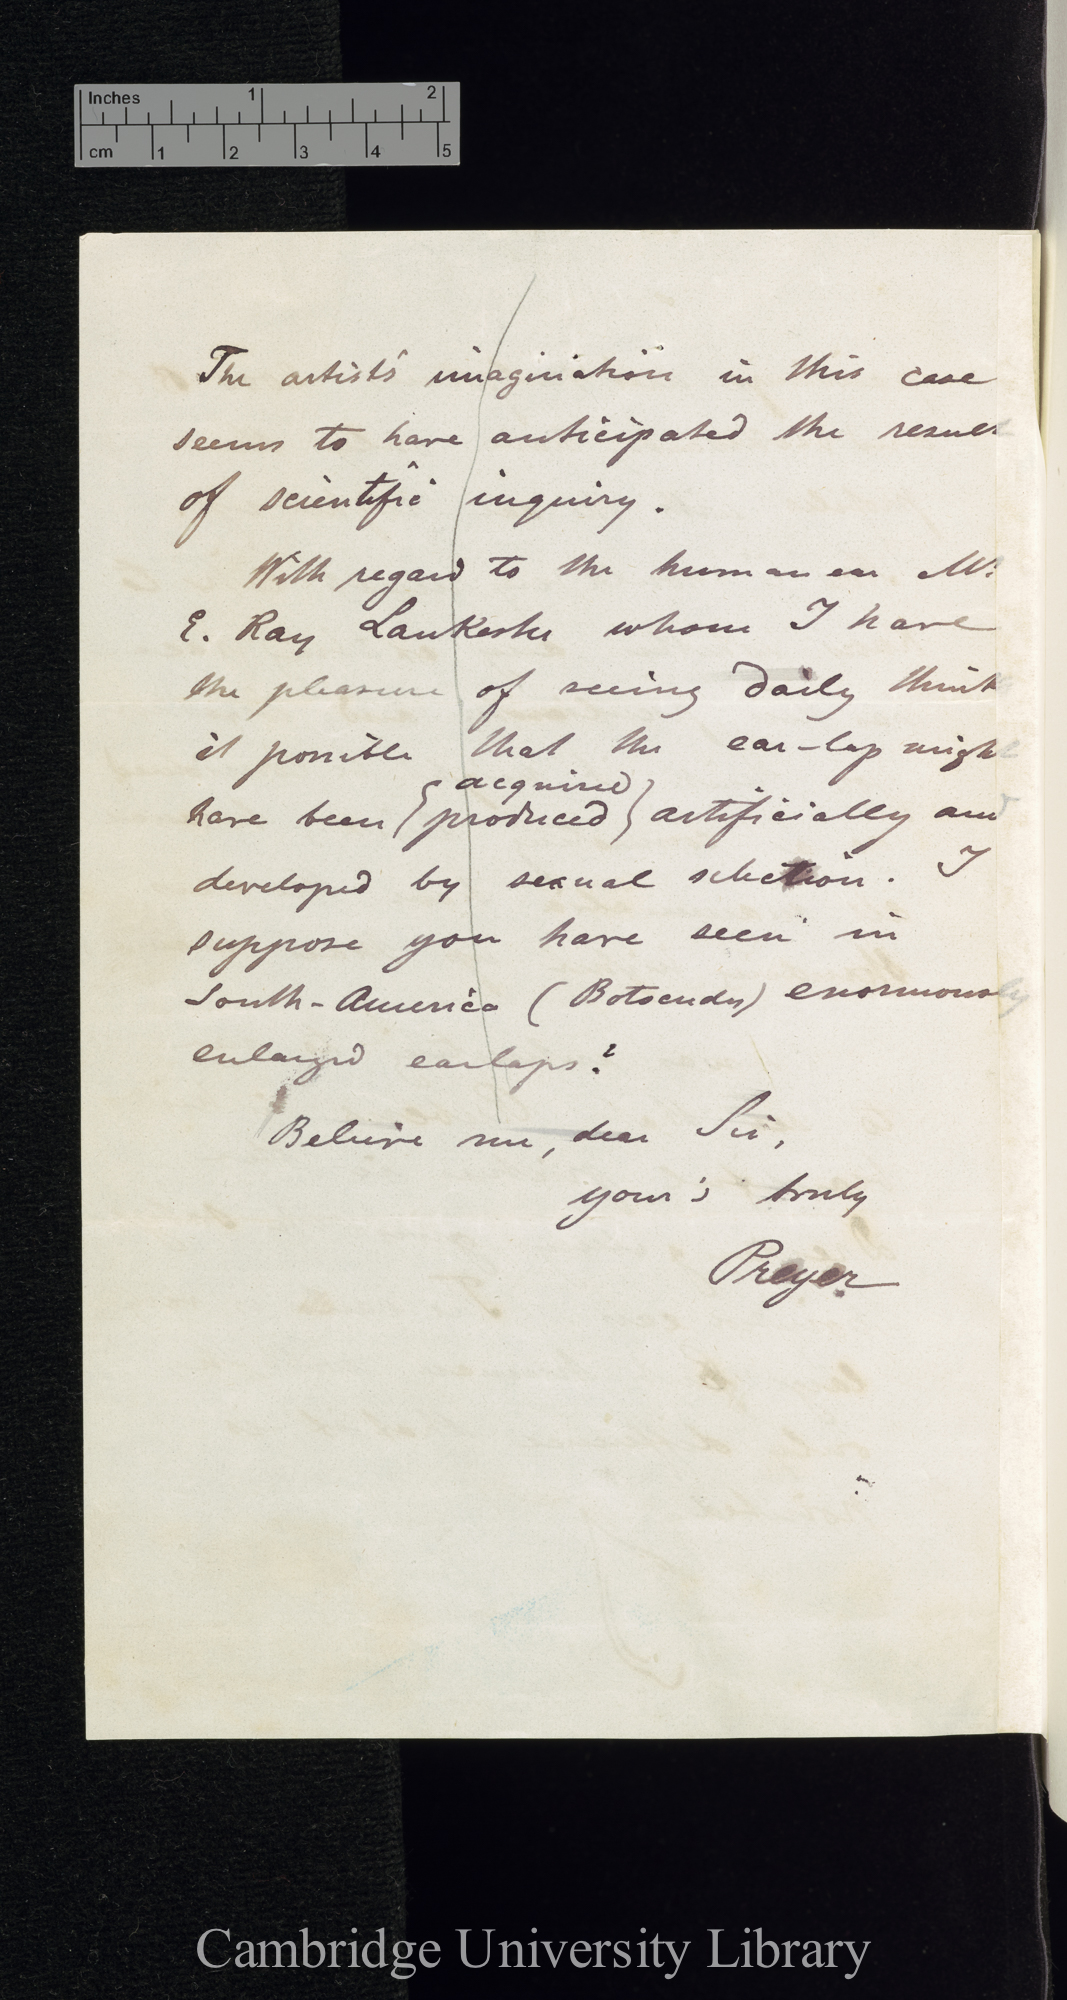 Inches 1 2
cm 1 2 3 4 5
The artist's imagination in this case
seems to have anticipated the result
of scientific inquiry.
With regard to the human ear Mr.
E. Ray Lankester whom I have
the pleasure of seeing daily think
it possible that the ear-lap might
acquired
have been { produced } artificially and
developed by sexual selection. I
suppose you have seen in
South-America (Botocudos) enormously
enlarged earlaps?
Believe me, dear Sir,
your's truly
Preyer
Cambridge University Library